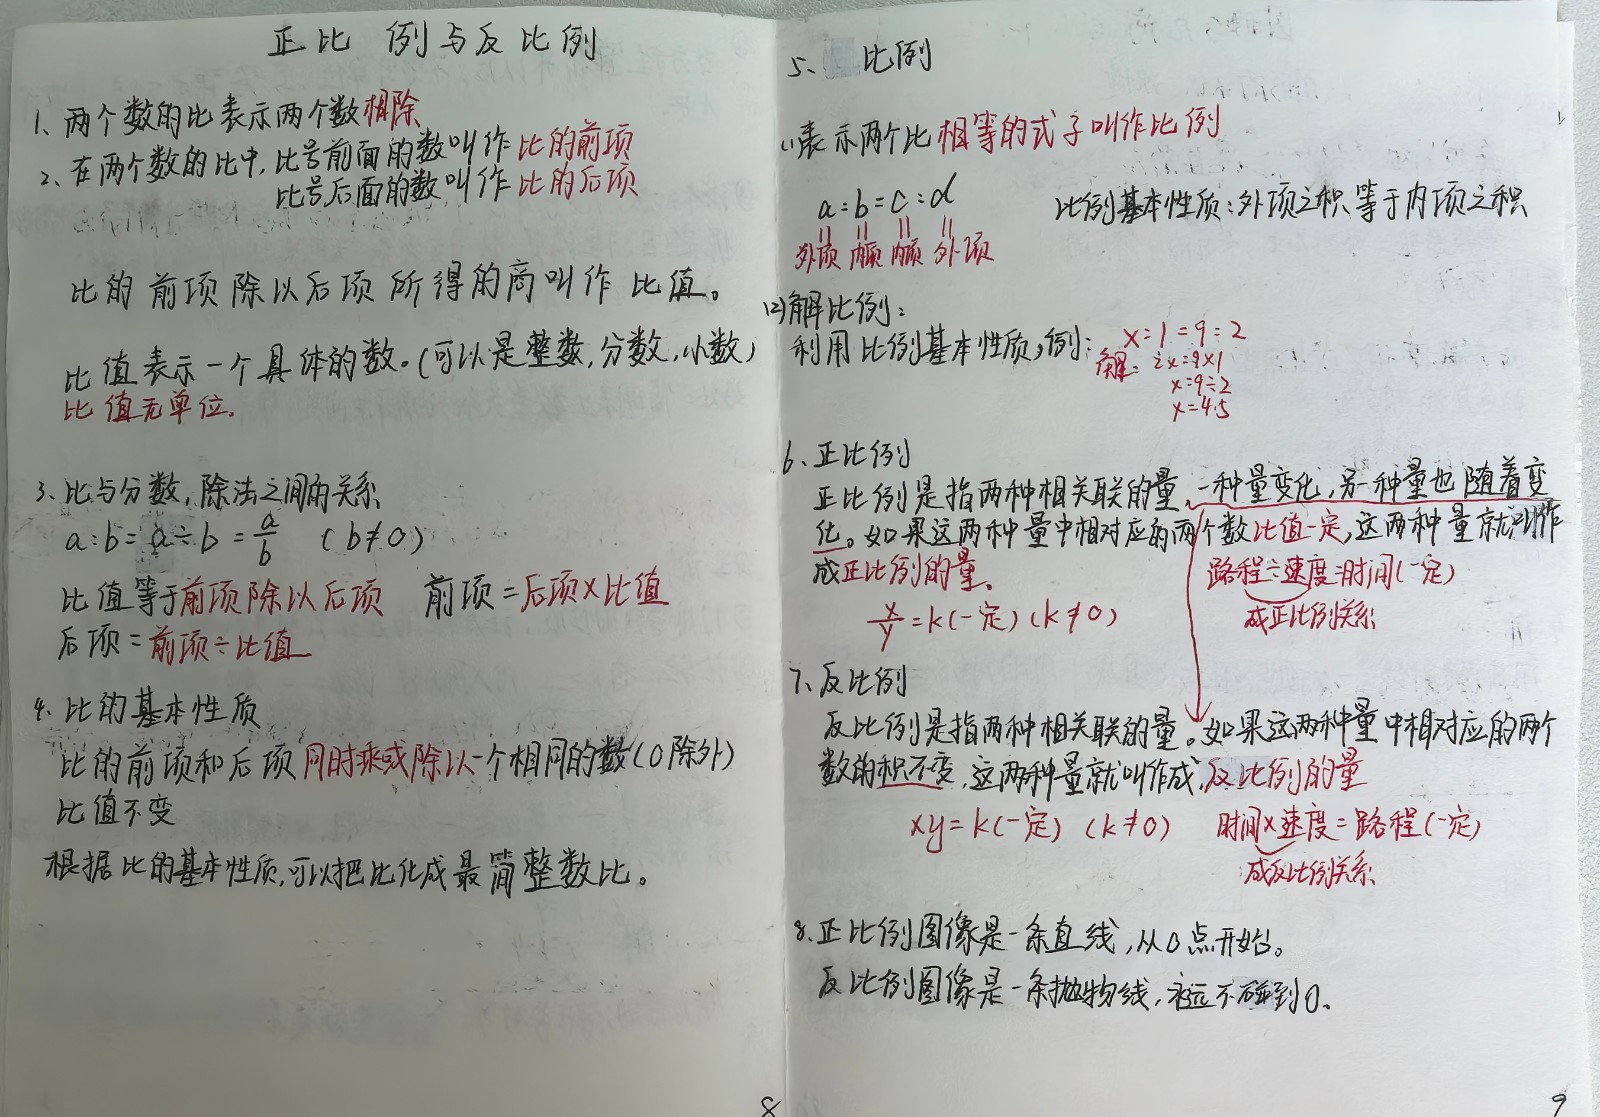 正比例与反比例
1、两个数的比表示两个数相除
2、在两个数的比中,比号前面的数叫作比的前项
比号后面的数叫作比的后项
比的前项除以后项所得的商叫作比值。
比值表示一个具体的数。(可以是整数,分数,小数)
比值无单位.
3、比与分数,除法之间的关系
a:b=a÷b=a/b (b≠0)
比值等于前项除以后项 前项=后项×比值
后项=前项÷比值
4、比的基本性质
比的前项和后项同时乘或除以一个相同的数(0除外)
比值不变
根据比的基本性质,可以把比化成最简整数比。
8
5、比例
(1)表示两个比相等的式子叫作比例
a:b=c:d
外项 内项 内项 外项
比例基本性质:外项之积等于内项之积
(2)解比例:
利用比例基本性质,例:
x:1=9:2
解: 2x=9×1
x=9÷2
x=4.5
6、正比例
正比例是指两种相关联的量,一种量变化,另一种量也随着变
化。如果这两种量中相对应的两个数比值一定,这两种量就叫作
成正比例的量。
路程÷速度=时间(一定)
成正比例关系
x/y=k(一定)(k≠0)
7、反比例
反比例是指两种相关联的量。如果这两种量中相对应的两个
数的积不变,这两种量就叫作成反比例的量
xy=k(一定) (k≠0) 时间×速度=路程(一定)
成反比例关系
8、正比例图像是一条直线,从0点开始。
反比例图像是一条抛物线,永远不碰到0。
9